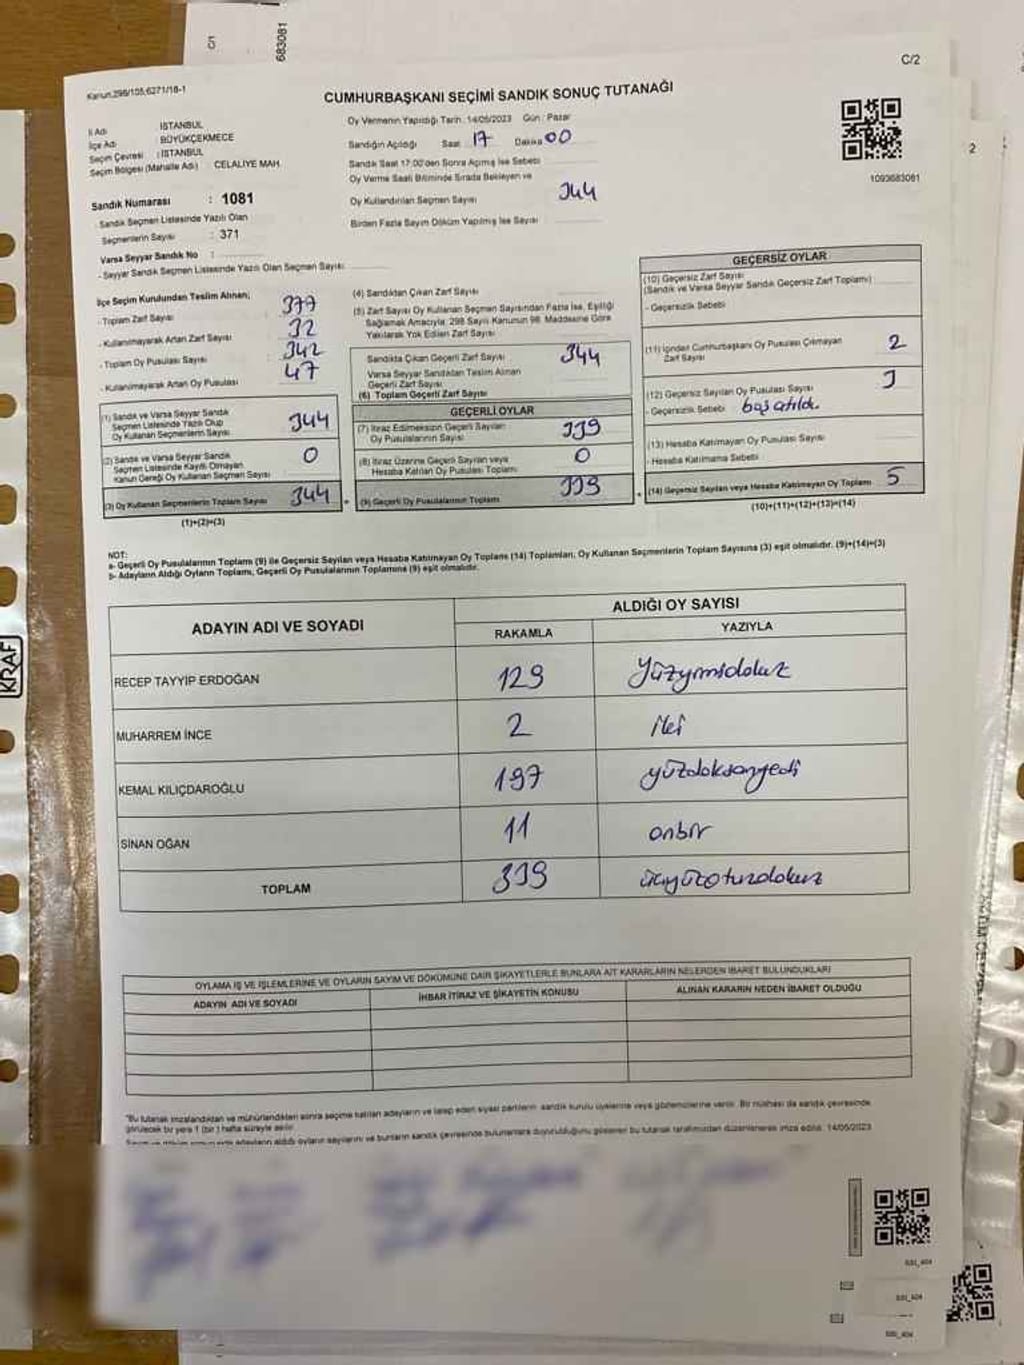 C/1
683081
C/2
Kanun,298/105;6271/18-1
CUMHURBAŞKANI SEÇİMİ SANDIK SONUÇ TUTANAĞI
İl Adı : İSTANBUL
İlçe Adı : BÜYÜKÇEKMECE
Seçim Çevresi : İSTANBUL
Seçim Bölgesi (Mahalle Adı) : CELALİYE MAH.
Sandık Numarası : 1081
- Sandık Seçmen Listesinde Yazılı Olan
Seçmenlerin Sayısı : 371
Varsa Seyyar Sandık No :
- Seyyar Sandık Seçmen Listesinde Yazılı Olan Seçmen Sayısı:
Oy Vermenin Yapıldığı Tarih : 14/05/2023 Gün : Pazar
Sandığın Açıldığı Saat 17 Dakika 00
Sandık Saat 17:00'den Sonra Açılmış İse Sebebi
Oy Verme Saati Bitiminde Sırada Bekleyen ve
Oy Kullandırılan Seçmen Sayısı 344
Birden Fazla Sayım Döküm Yapılmış İse Sayısı
1093683081
2
İlçe Seçim Kurulundan Teslim Alınan;
- Toplam Zarf Sayısı : 377
- Kullanılmayarak Artan Zarf Sayısı : 32
- Toplam Oy Pusulası Sayısı : 342
- Kullanılmayarak Artan Oy Pusulası : 47
(1) Sandık ve Varsa Seyyar Sandık
Seçmen Listesinde Yazılı Olup
Oy Kullanan Seçmenlerin Sayısı 344
(2) Sandık ve Varsa Seyyar Sandık
Seçmen Listesinde Kayıtlı Olmayan
Kanun Gereği Oy Kullanan Seçmen Sayısı 0
(3) Oy Kullanan Seçmenlerin Toplam Sayısı 344
(1)+(2)=(3)
(4) Sandıktan Çıkan Zarf Sayısı
(5) Zarf Sayısı Oy Kullanan Seçmen Sayısından Fazla İse, Eşitliği
Sağlamak Amacıyla; 298 Sayılı Kanunun 98. Maddesine Göre
Yakılarak Yok Edilen Zarf Sayısı
Sandıkta Çıkan Geçerli Zarf Sayısı 344
Varsa Seyyar Sandıktan Teslim Alınan
Geçerli Zarf Sayısı
(6) Toplam Geçerli Zarf Sayısı
GEÇERLİ OYLAR
(7) İtiraz Edilmeksizin Geçerli Sayılan
Oy Pusulalarının Sayısı 339
(8) İtiraz Üzerine Geçerli Sayılan veya
Hesaba Katılan Oy Pusulası Toplamı 0
(9) Geçerli Oy Pusulalarının Toplamı 339
GEÇERSİZ OYLAR
(10) Geçersiz Zarf Sayısı
(Sandık ve Varsa Seyyar Sandık Geçersiz Zarf Toplamı)
- Geçersizlik Sebebi
(11) İçinden Cumhurbaşkanı Oy Pusulası Çıkmayan
Zarf Sayısı 2
(12) Geçersiz Sayılan Oy Pusulası Sayısı 3
- Geçersizlik Sebebi boş atıldı.
(13) Hesaba Katılmayan Oy Pusulası Sayısı
- Hesaba Katılmama Sebebi
(14) Geçersiz Sayılan veya Hesaba Katılmayan Oy Toplamı 5
(10)+(11)+(12)+(13)=(14)
NOT:
a- Geçerli Oy Pusulalarının Toplamı (9) ile Geçersiz Sayılan veya Hesaba Katılmayan Oy Toplamı (14) Toplamları, Oy Kullanan Seçmenlerin Toplam Sayısına (3) eşit olmalıdır. (9)+(14)=(3)
b- Adayların Aldığı Oyların Toplamı, Geçerli Oy Pusulalarının Toplamına (9) eşit olmalıdır.
ADAYIN ADI VE SOYADI
ALDIĞI OY SAYISI
RAKAMLA YAZIYLA
RECEP TAYYIP ERDOĞAN 129 yüzyirmidokuz
MUHARREM İNCE 2 iki
KEMAL KILIÇDAROĞLU 197 yüzdoksanyedi
SİNAN OĞAN 11 onbir
TOPLAM 339 üçyüzotuzdokuz
OYLAMA İŞ VE İŞLEMLERİNE VE OYLARIN SAYIM VE DÖKÜMÜNE DAİR ŞİKAYETLERLE BUNLARA AİT KARARLARIN NELERDEN İBARET BULUNDUKLARI
ADAYIN ADI VE SOYADI İHBAR İTİRAZ VE ŞİKAYETİN KONUSU ALINAN KARARIN NEDEN İBARET OLDUĞU
"Bu tutanak imzalandıktan ve mühürlendikten sonra seçime katılan adayların ve talep eden siyasi partilerin sandık kurulu üyelerine veya gözlemcilerine verilir. Bir nüshası da sandık çevresinde
görülecek bir yere 1 (bir) hafta süreyle asılır.
adayların aldığı oyların sayılarını ve bunların sandık çevresinde bulunanlara duyurulduğunu gösteren bu tutanak tarafımızdan düzenlenerek imza edildi. 14/05/2023
KRAF